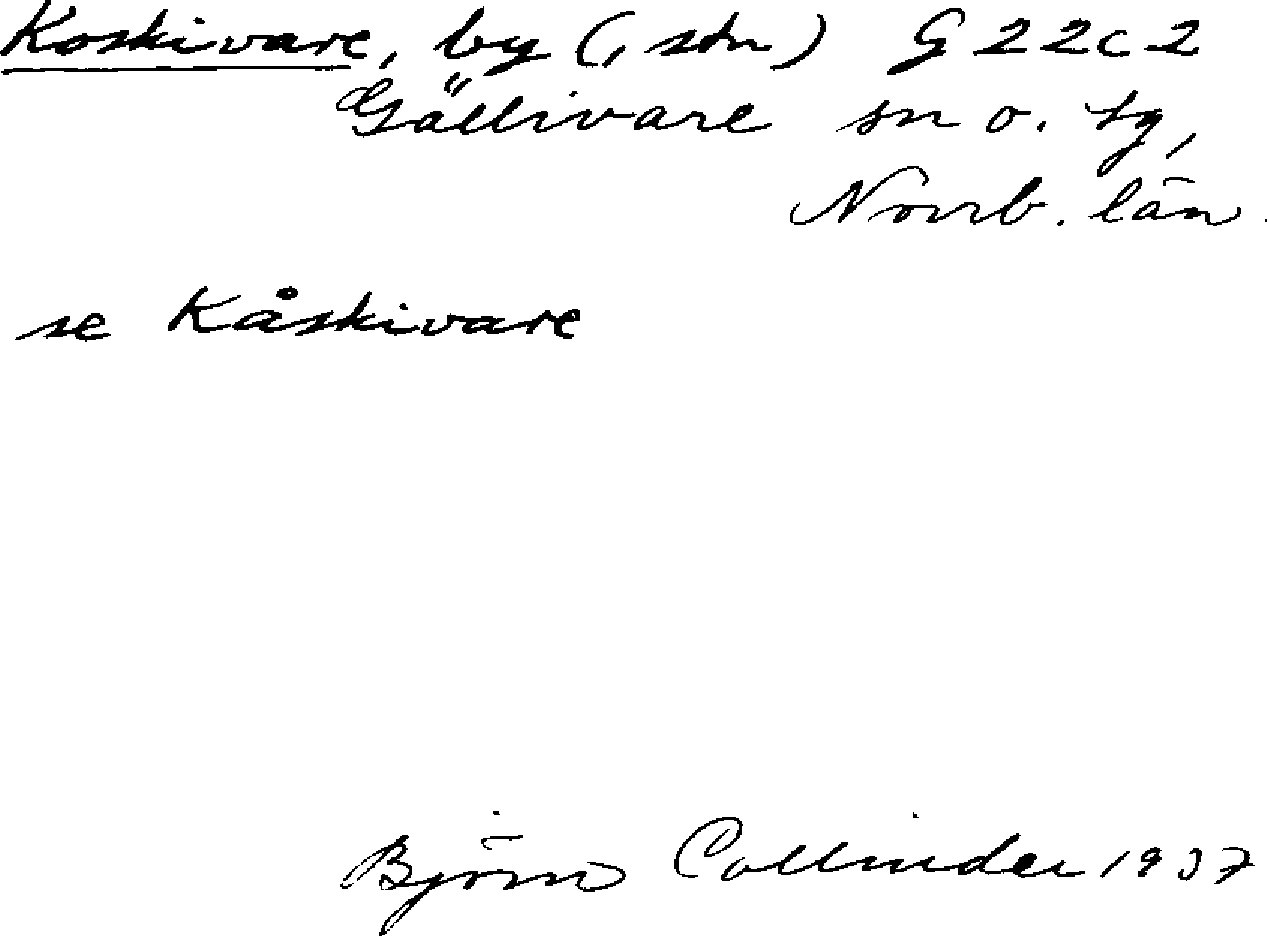 Koskivare, by (, stn) G 22c2
Gällivare sn o. tg,
Norrb. län.
se Kåskivare
Björn Collinder 1937